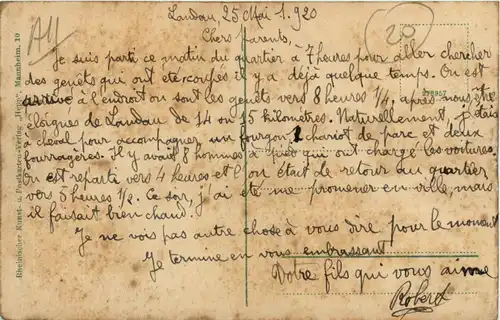 A11
20
Landau, 25 Mai 1.920
Chers Parents,
Je suis parti ce matin du quartier à 7 heures pour aller chercher
des genêts qui ont été coupés il y a déjà quelque temps. On est
arrivé à l'endroit où sont les genêts vers 8 heures 1/4, après nous être
éloignés de Landau de 14 ou 15 kilomètres. Naturellement, j'étais
à cheval pour accompagner un fourgon, 1 chariot de parc et deux
fourragères. Il y avait 8 hommes à pied qui ont chargé les voitures.
On est reparti vers 4 heures et l'on était de retour au quartier
vers 5 heures 1/2. Ce soir, j'ai été me promener en ville, mais
il faisait bien chaud.
Je ne vois pas autre chose à vous dire pour le moment
Je termine en vous embrassant
Votre fils qui vous aime
Robert
Rheinischer Kunst- u. Postkarten-Verlag "Hugo", Mannheim. 10